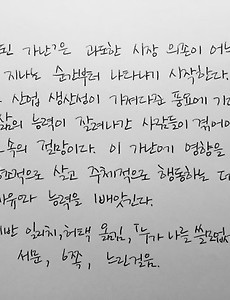 된 가난?은 과도한 시장 의존이 어느
지나는 순간부터 나타나기 시작한다.
산업 생산성이 가져다준 풍요에 기
삶의 능력이 잘려나간 사람들이 겪어야
속의 절망이다. 이 가난에 영향을
조적으로 살고 주체적으로 행동하는 데
자유와 능력을 빼앗긴다.
반 일리치, 허택 옮김, 『누가 나를 쓸모없
서문, 6쪽, 느린걸음.